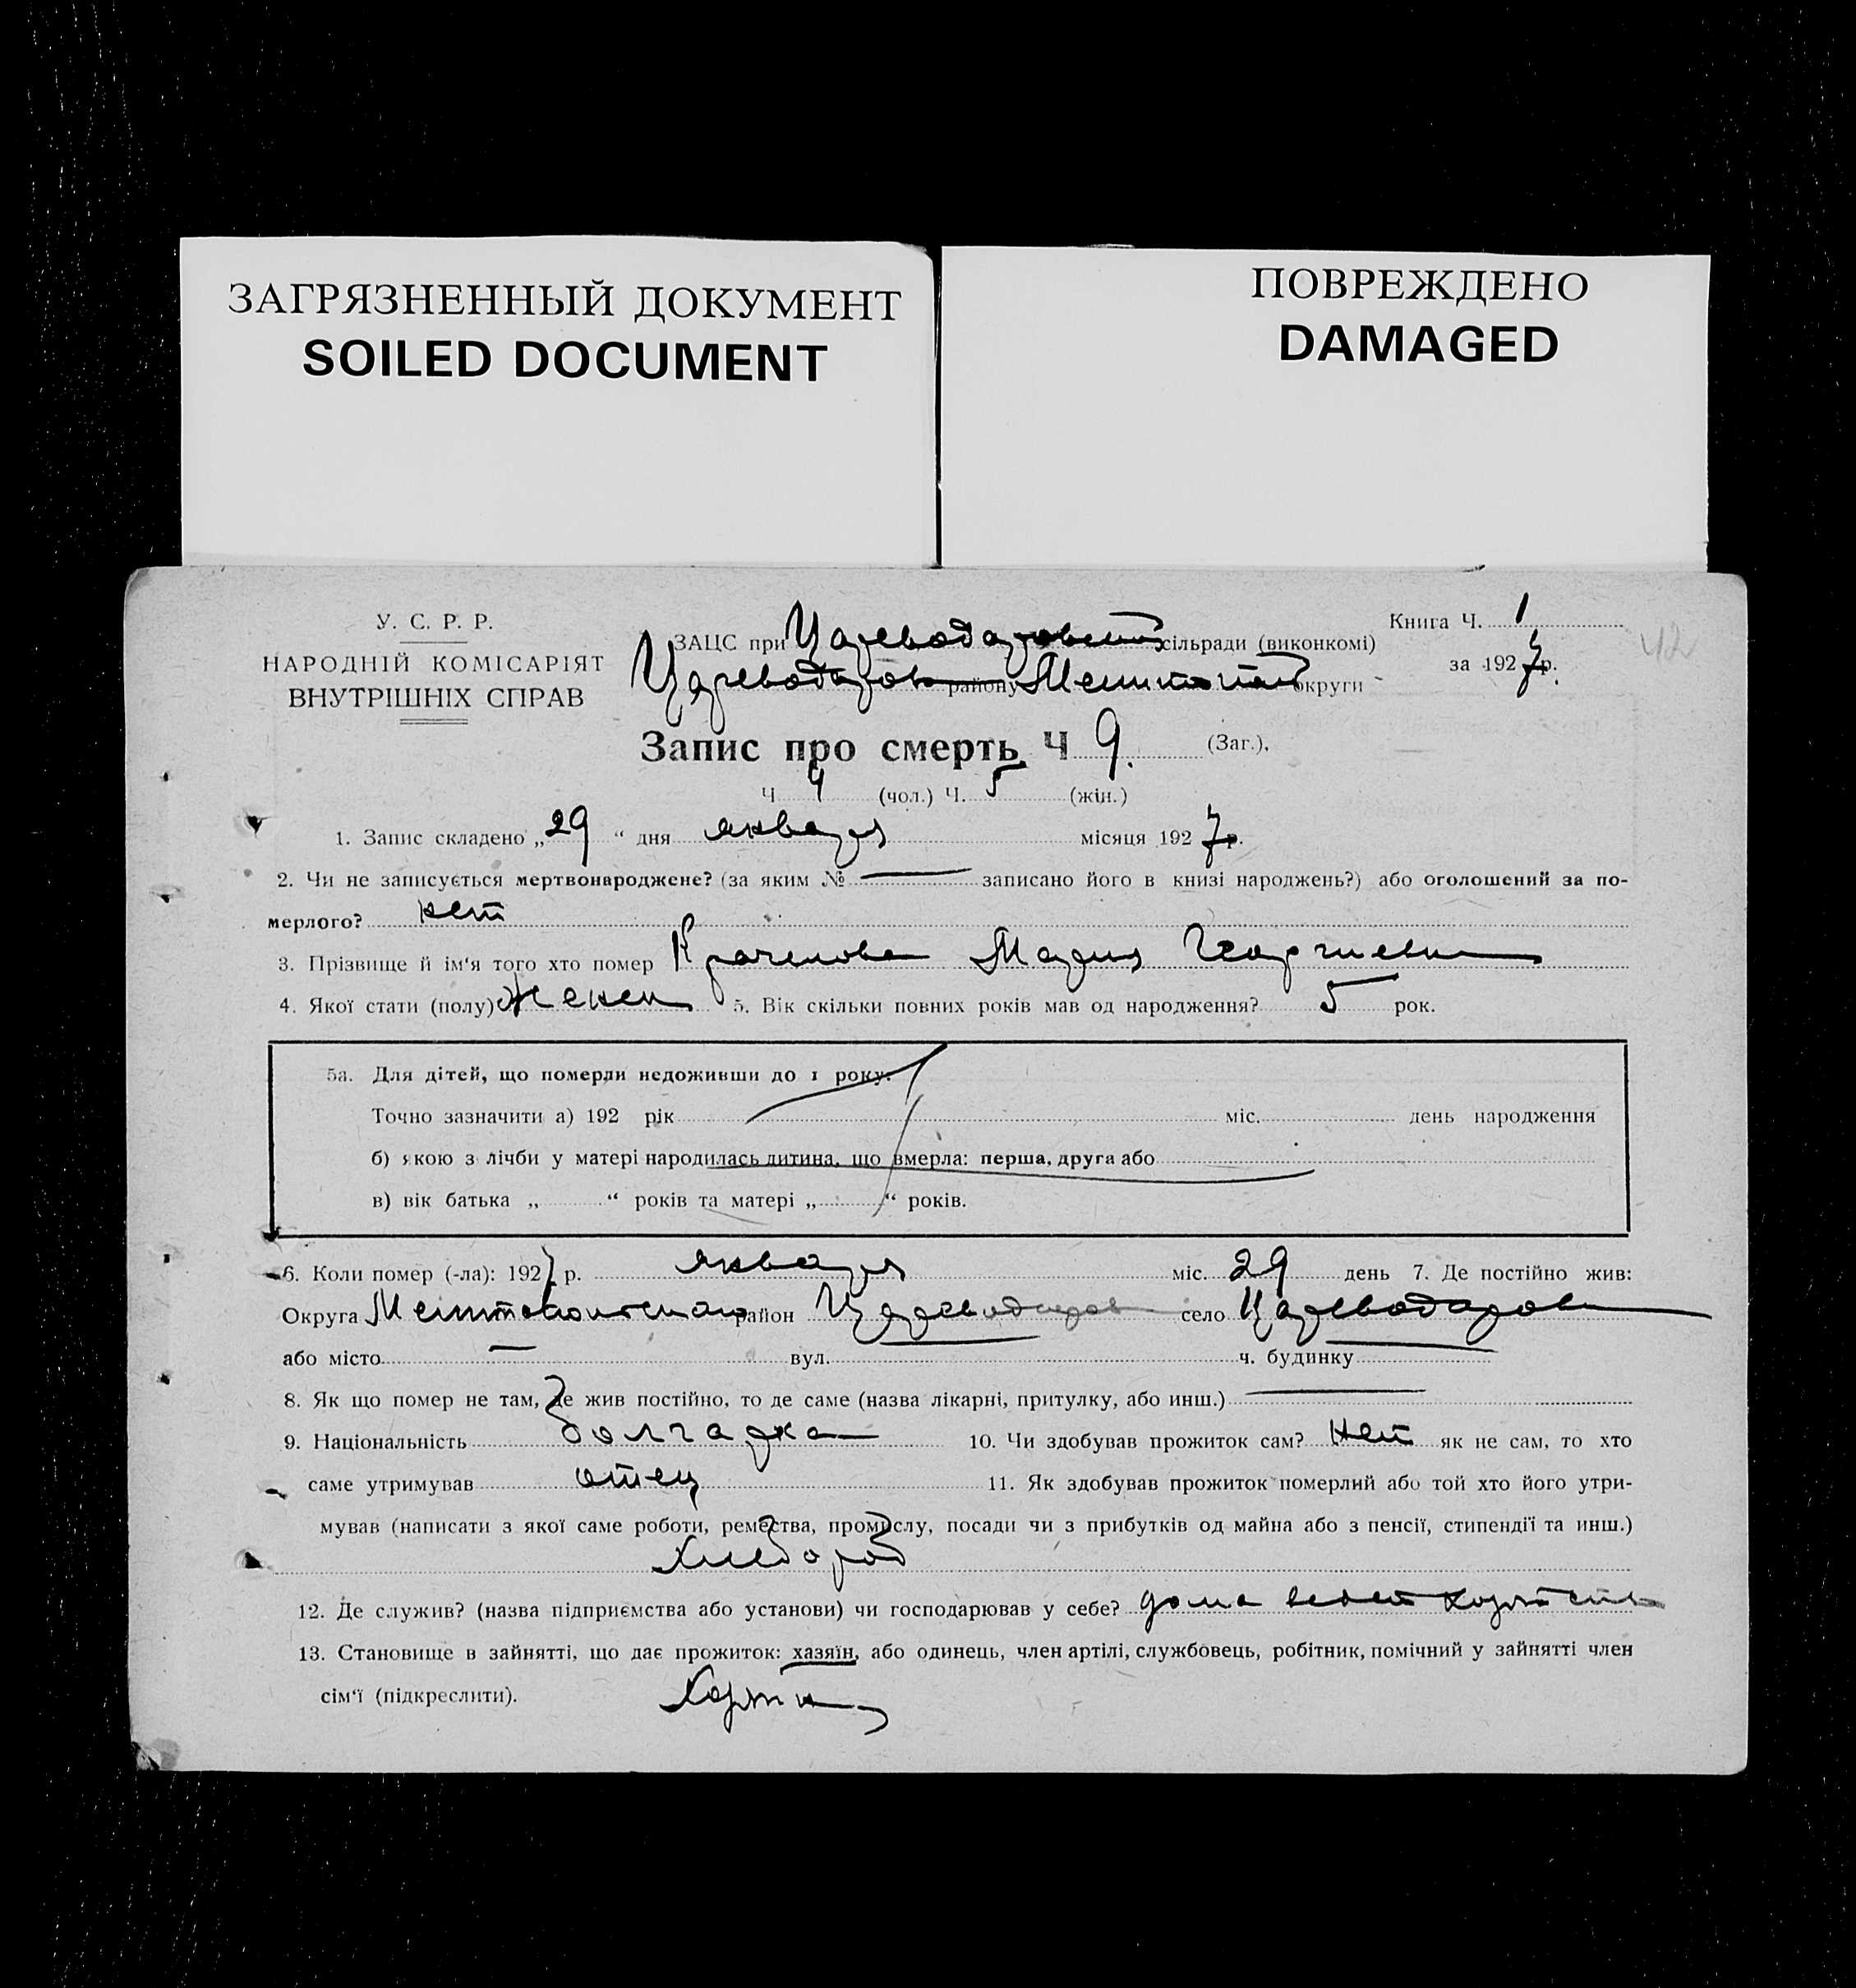 ЗАГРЯЗНЕННЫЙ ДОКУМЕНТ
SOILED DOCUMENT
ПОВРЕЖДЕНО
DAMAGED
У. С. Р. Р.
НАРОДНІЙ КОМІСАРІЯТ
ВНУТРІШНІХ СПРАВ
ЗАЦС при Цареводаровской сільради (виконкомі)
Цареводаров району Мелитопол округи
Книга Ч. 1
за 1927 р.
42
Запис про смерть Ч 9. (Заг.),
Ч 4 (чол.) Ч. 5 (жін.)
1. Запис складено „29“ дня января місяця 1927 р.
2. Чи не записується мертвонароджене? (за яким № — записано його в книзі народжень?) або оголошений за по-
мерлого? нет
3. Прізвище й ім‘я того хто помер Мария Георгиевна
4. Якої стати (полу) женск 5. Вік скільки повних років мав од народження? 5 рок.
5а. Для дітей, що померли недоживши до 1 року.
Точно зазначити а) 192 рік міс. день народження
б) якою з лічби у матері народилась дитина, що вмерла: перша, друга або
в) вік батька „ “ років та матері „ “ років.
6. Коли помер (-ла): 1927 р. января міс. 29 день 7. Де постійно жив:
Округа район Цареводаров село Цареводаров
або місто — вул. ч. будинку
8. Як що помер не там, де жив постійно, то де саме (назва лікарні, притулку, або инш.) —
9. Національність болгарка 10. Чи здобував прожиток сам? нет як не сам, то хто
саме утримував отец 11. Як здобував прожиток померлий або той хто його утри-
мував (написати з якої саме роботи, ремества, промислу, посади чи з прибутків од майна або з пенсії, стипендії та инш.)
Хлебороб
12. Де служив? (назва підприємства або установи) чи господарював у себе? дома
13. Становище в зайнятті, що дає прожиток: хазяїн, або одинець, член артілі, службовець, робітник, помічний у зайнятті член
сім‘ї (підкреслити).